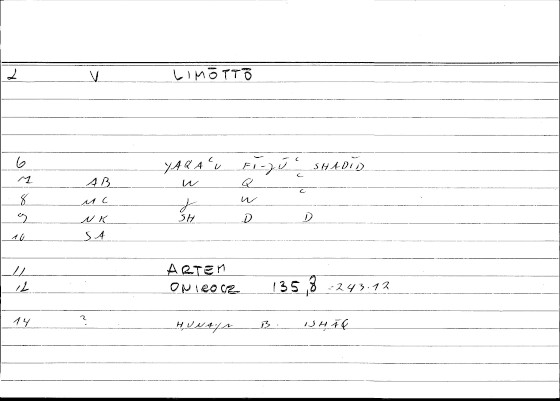 2 V LIMŌTTŌ
6 YAQAʿU FĪ-ǦŪʿ SHADĪD
7 AB W Q ʿ
8 MC ǧ W ʿ
9 NK SH D D
10 SA
11 ARTEM
12 ONIROCR 135,8 = 243.12
14 ? ḤUNAYN B. ISḤĀQ